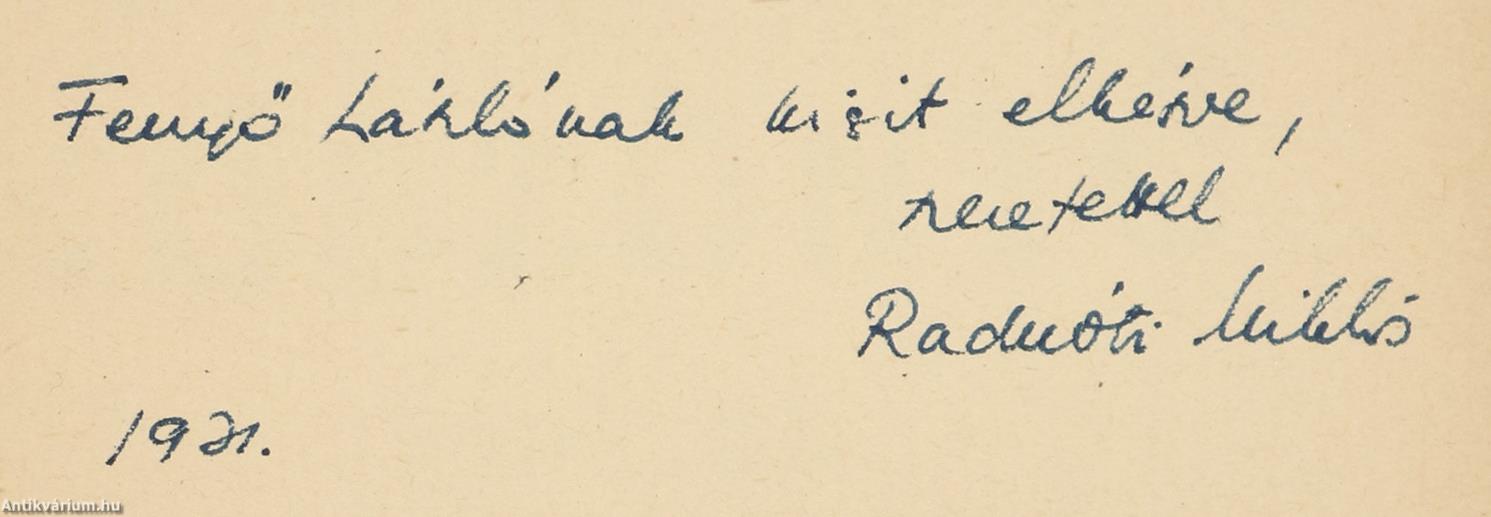 Fenyő Lászlónak kicsit elkésve,
szeretettel
Radnóti Miklós
1931.
Antikvárium.hu